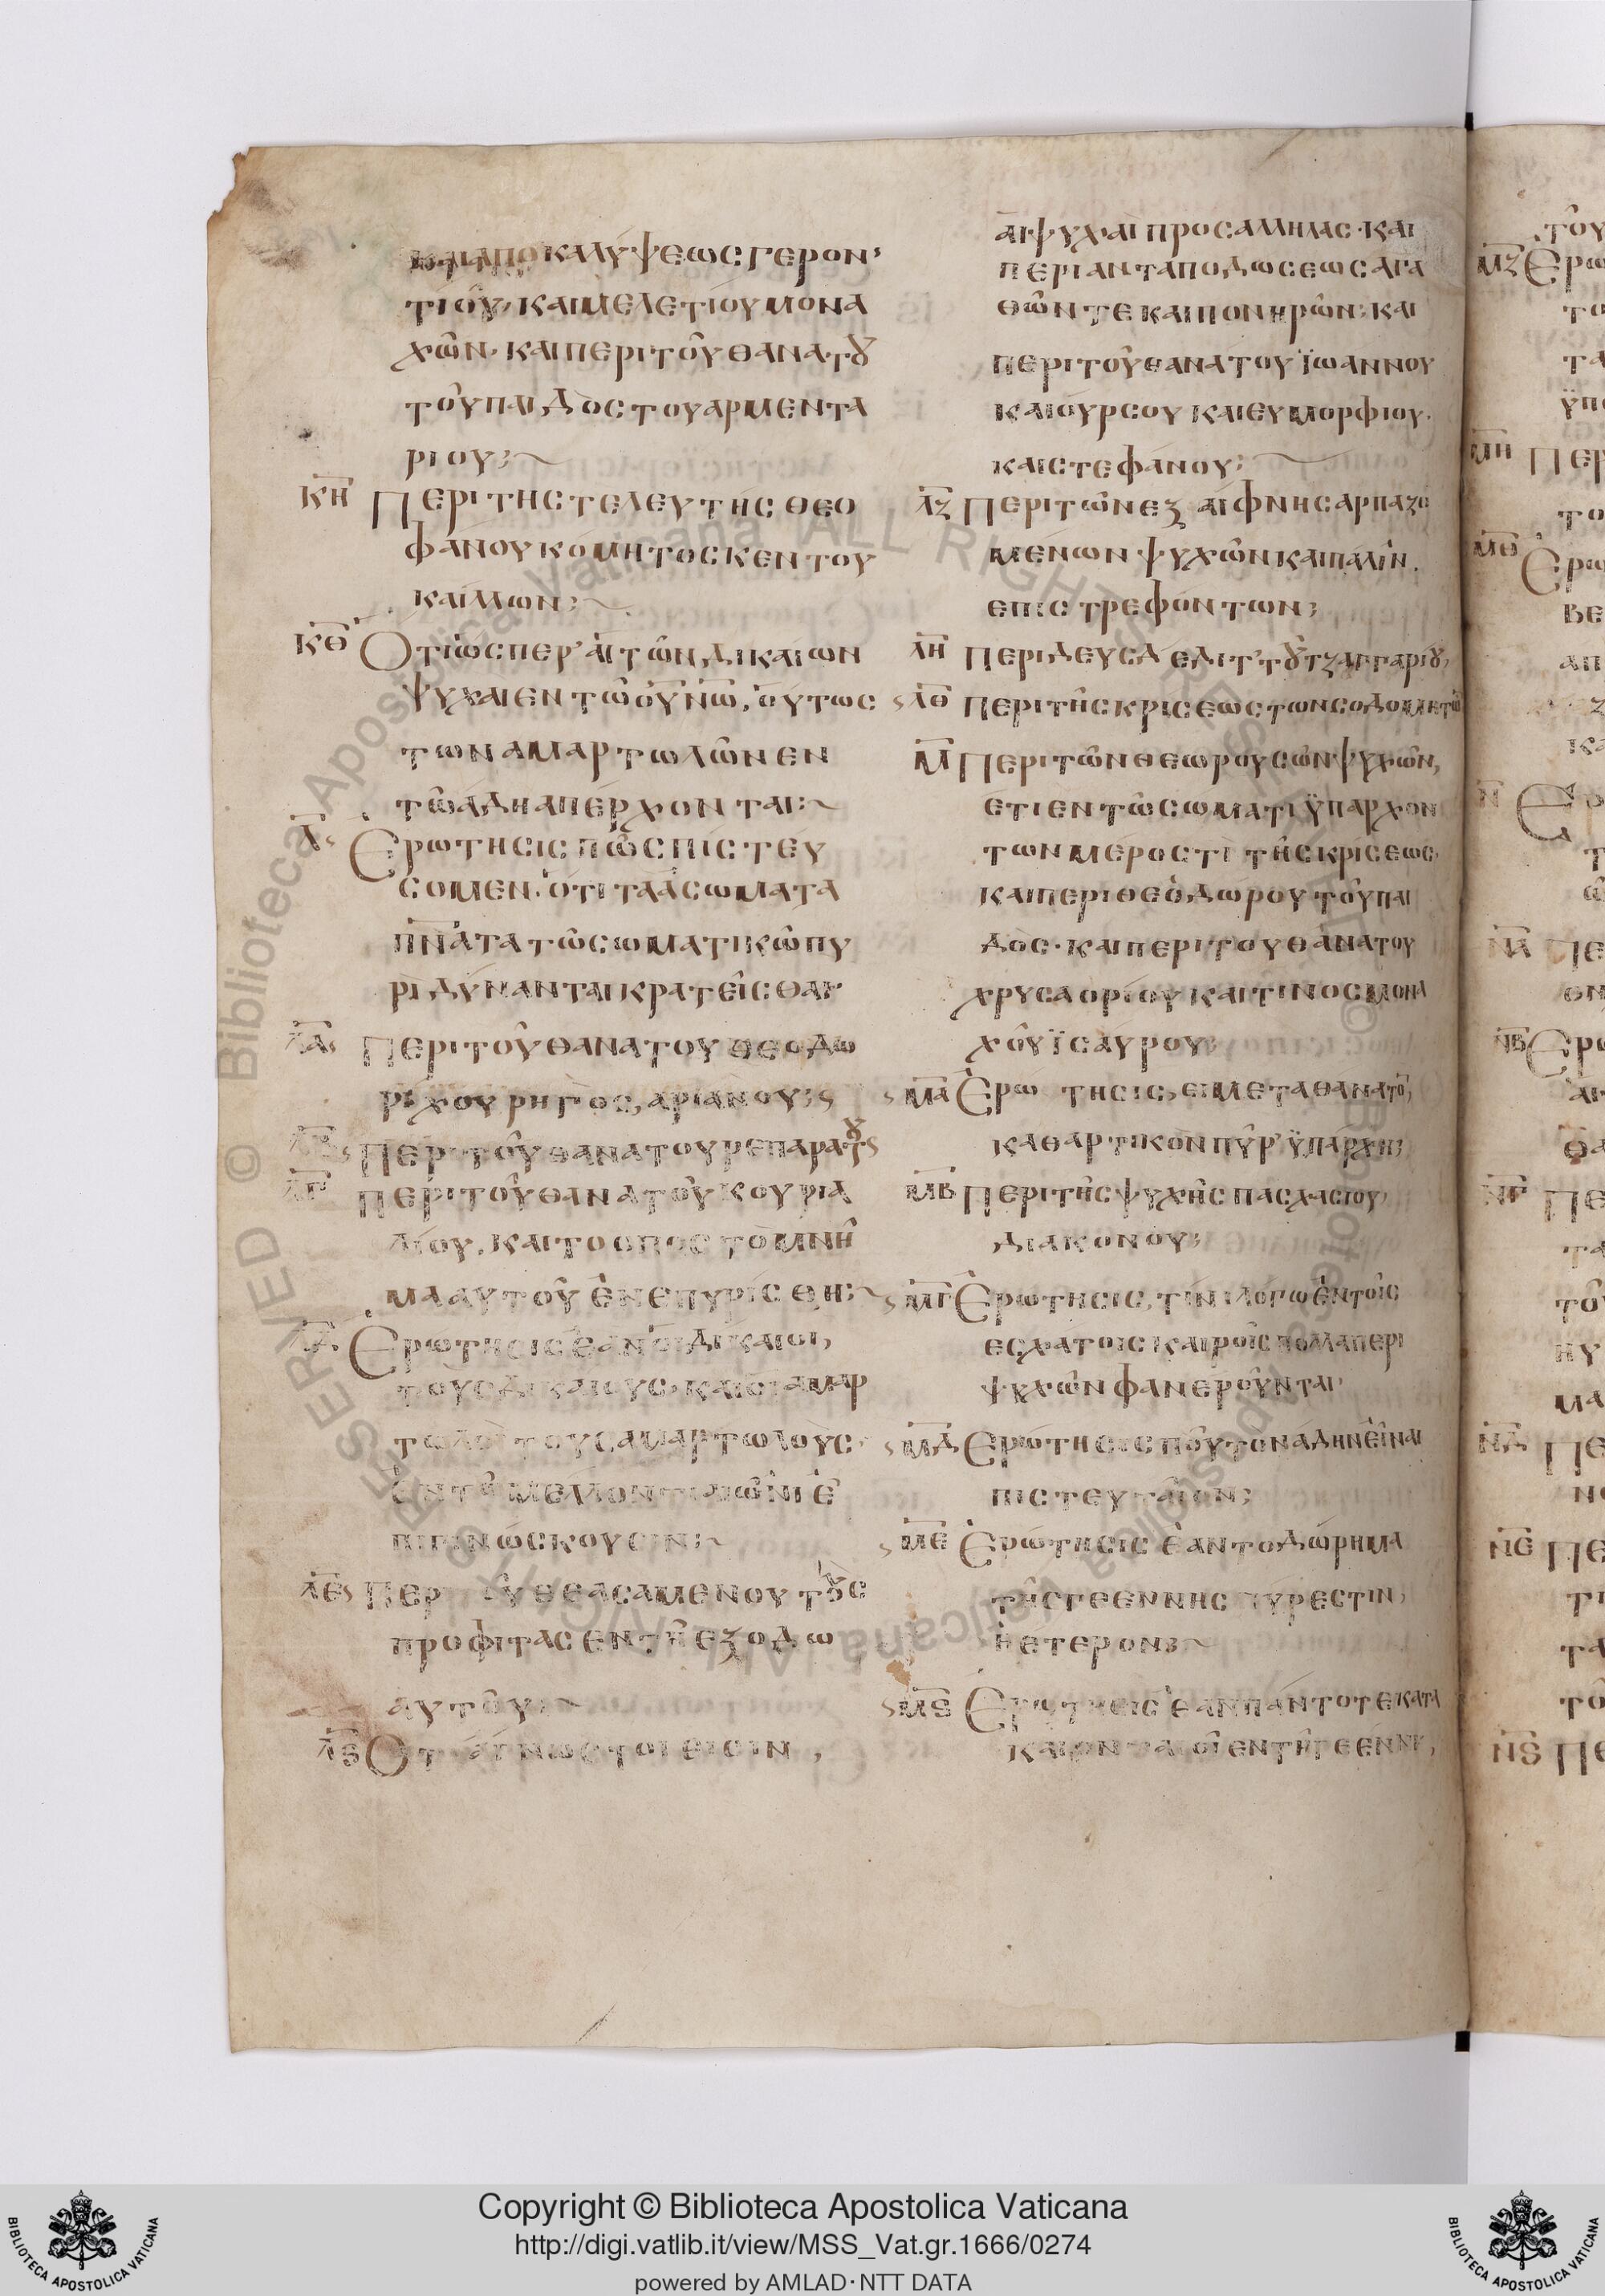 καὶ ἀποκαλύψεως γερον
τιοῦ, καὶ μελετίου μονα
χῶν· καὶ περὶ τοῦ θανάτου
τοῦ παιδὸς τοῦ αρμεντα
ρίου;
κη Περὶ τῆς τελευτῆς θεο
φάνου κόμητος κεντου
καίλλων;
κθ Ὅτι ὥσπερ αἱ τῶν δικαίων
ψυχαὶ ἐν τῷ οὐνω, οὕτως
τῶν ἁμαρτωλῶν ἐν
τῷ ἅδη ἀπέρχονται:
λ Ἐρώτησις πῶς πιστεύ
σομεν· ὅτι τὰ ἀσώματα
πνατα τῷ σωματικῷ πυ
ρὶ δύνανται κρατεῖσθαι·
λα Περὶ τοῦ θανάτου θεοδω
ρίχου ρηγὸς, αριανου;
λβ Περὶ τοῦ θανάτου ρεπαράτου
λγ Περὶ τοῦ θανάτου κουρια
λίου, καὶ τὸ ὅπως τὸ μνῆ
μα αὐτοῦ ἐνεπυρίσθη:
λδ Ἐρώτησις ἐὰν οἱ δίκαιοι,
τοὺς δικαίους, καὶ οἱ ἁμαρ
τωλοὶ τοὺς ἁμαρτωλοὺς·
ἐν τῷ μέλλοντι αἰῶνι ἐ
πιγινώσκουσιν;
λε Περὶ τοῦ θεασαμένου τοὺς
προφίτας ἐν τῇ ἐξόδω
αὐτοῦ;
λϛ Ὅτι ἄγνωστοι εἰσὶν,
αἱ ψυχαὶ πρὸς ἀλλήλας· καὶ
περὶ ἀνταποδώσεως ἀγα
θῶν τε καὶ πονηρῶν; καὶ
περὶ τοῦ θανάτου ϊωάννου
καὶ οὔρσου καὶ ευμορφίου·
καὶ στεφάνου;
λζ Περὶ τῶν ἐξ αἴφνης ἁρπαζο
μένων ψυχῶν καὶ πάλιν
ἐπιστρεφόντων;
λη Περὶ δευσδεδιτ τοῦ τζαγγαρίου,
λθ Περὶ τῆς κρίσεως τῶν σοδομητῶ
μ Περὶ τῶν θεωρουσῶν ψυχῶν,
ἔτι ἐν τῷ σώματι ϋπαρχον
των μέρος τὶ τῆς κρίσεως,
καὶ περὶ θεοδώρου τοῦ παι
δὸς· καὶ περὶ τοῦ θανάτου
χρυσαορίου καί τινος μονα
χοῦ ϊσαύρου;
μα Ἐρώτησις, εἰ μετὰ θάνατο,
καθαρτικὸν πῦρ ϋπάρχει;
μβ Περὶ τῆς ψυχῆς πασχασίου
διακόνου;
μγ Ἐρώτησις, τίνι λόγω ἐν τοῖς
ἐσχάτοις καιροῖς πολλὰ περὶ
ψυχῶν φανεροῦνται·
μδ Ἐρώτησις ποῦ τὸν ἅδην εἶναι
πιστευταῖον;
με Ἐρώτησις ἐὰν το δώρημα
τῆς γεέννης πύρ ἐστιν,
ἢ ἕτερον;
μϛ Ἐρώτησις ἐὰν πάντοτε κατὰ
καιρὸν οἱ ἐν τῇ γεέννη,
Copyright © Biblioteca Apostolica Vaticana
http://digi.vatlib.it/view/MSS_Vat.gr.1666/0274
powered by AMLAD·NTT DATA